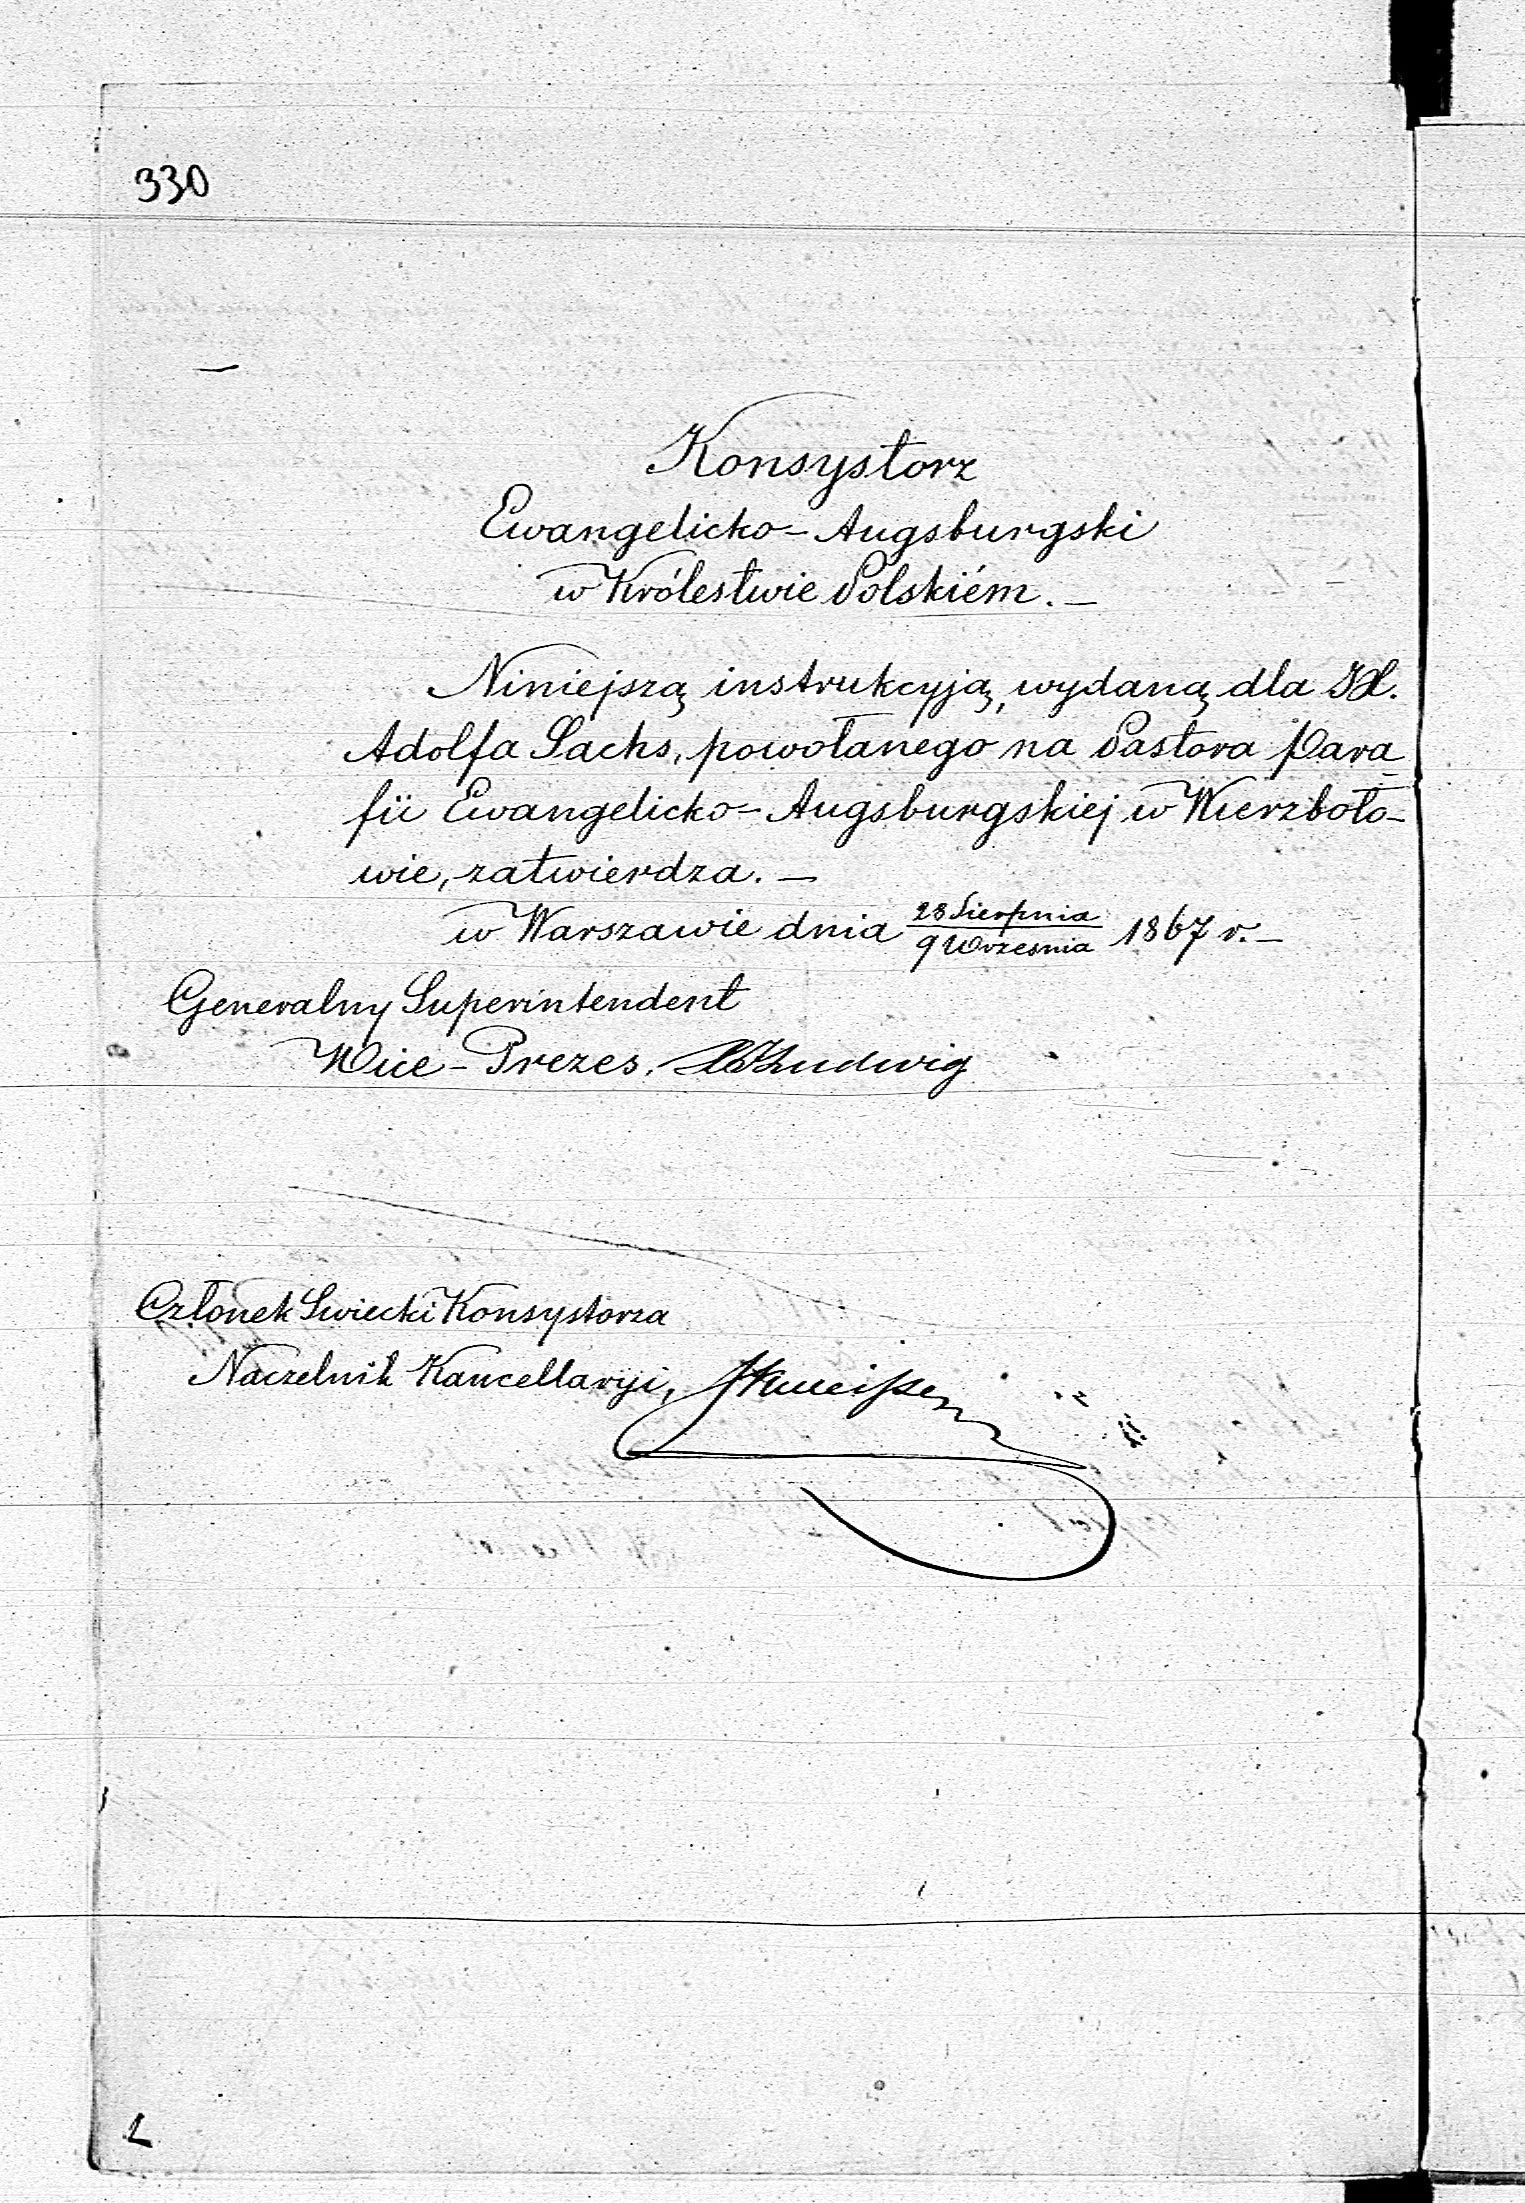 330
Konsystorz
Ewangelicko-Augsburgski
w Królestwie Polskiém.—
Niniejszą instrukcyją, wydaną dla JX.
Adolfa Sachs, powołanego na Pastora Para=
fii Ewangelicko-Augsburgskiej w Wierzboło-
wie, zatwierdza.—
w Warszawie dnia 28 Sierpnia / 9 Września 1867 r.—
Generalny Superintendent
Wice-Prezes. Ludwig
Członek Swiecki Konsystorza
Naczelnik Kancellaryi,